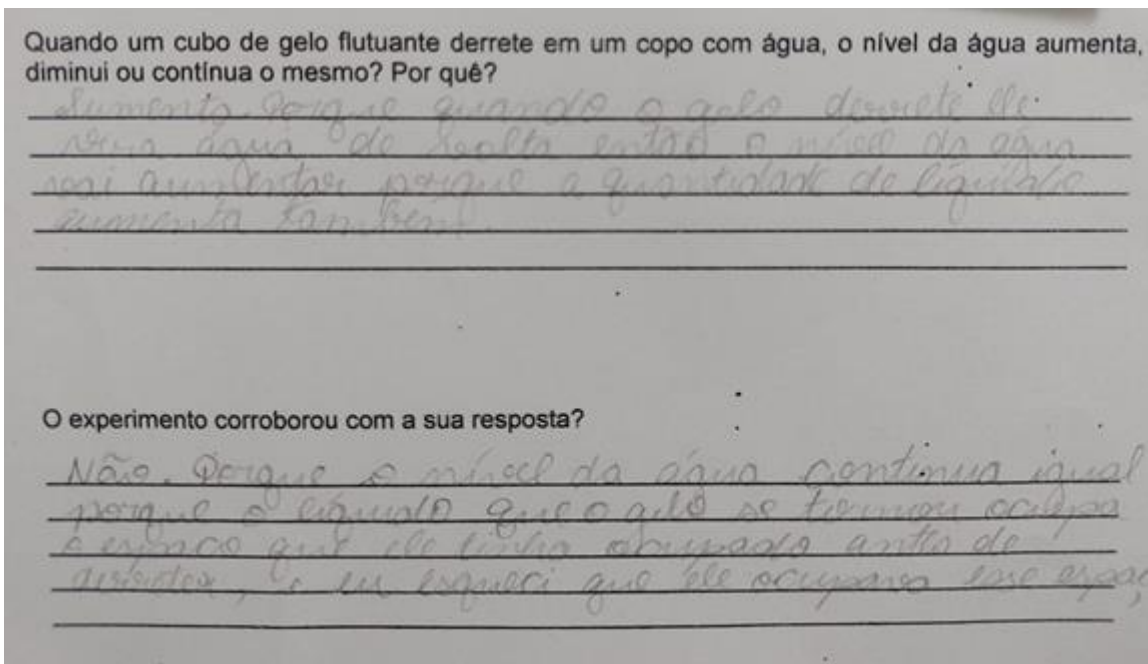 Quando um cubo de gelo flutuante derrete em um copo com água, o nível da água aumenta,
diminui ou continua o mesmo? Por quê?
Aumenta. Porque quando o gelo derrete ele
vira água de volta então o nível da água
vai aumentar porque a quantidade de líquido
aumenta também.
O experimento corroborou com a sua resposta?
Não. Porque o nível da água continua igual
porque o líquido que o gelo se tornou ocupa
o espaço que ele tinha ocupado antes de
derreter, e eu esqueci que ele ocupava esse